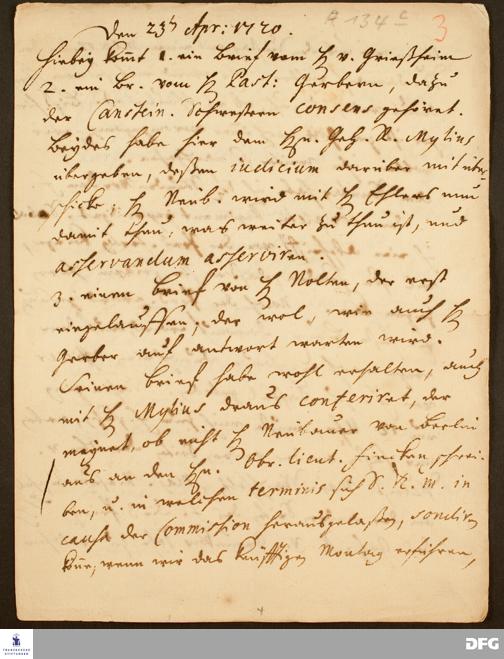 A 134 c
3
Den 23th Apr: 1720.
Hiebey komt 1. ein Brief vom H v. Grießheim
2. ein Br. vom H Past: Gerbern, dazu
der Canstein. Schwestern consens gehöret.
Beydes habe hier dem Hn. Geh. R. Mylius
übergeben, deßen iudicium darüber mit über
schicke; H Neub. wird mit H Ehlers nun
damit thun, was weiter zu thun ist, und
asservandum asserviren.
3. einen Brief von H Nolten, der erst
eingelauffen, der wol, wie auch H
Gerber auf antwort warten wird.
Seinen brief habe wohl erhalten, auch
mit H Mylius draus conferiret, der
meynet, ob nicht H Neubauer von Berlin
aus an den Hn. Obr. lieut. Fincken schrei-
ben, u. in welchen terminis sich S. K. M. in
causa der Commission herausgelaßen, sondiren
könne, wenn wir das künfftigen Montag erführen,
FRANCKESCHE STIFTUNGEN
DFG